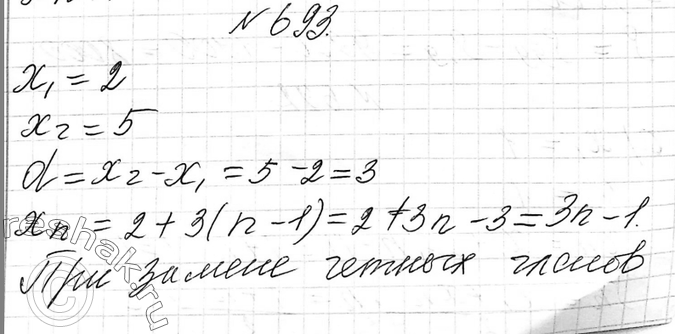 № 693.
x₁ = 2
x₂ = 5
d = x₂ - x₁ = 5 - 2 = 3
xₙ = 2 + 3(n - 1) = 2 + 3n - 3 = 3n - 1.
При замене четных членов
© reshak.ru